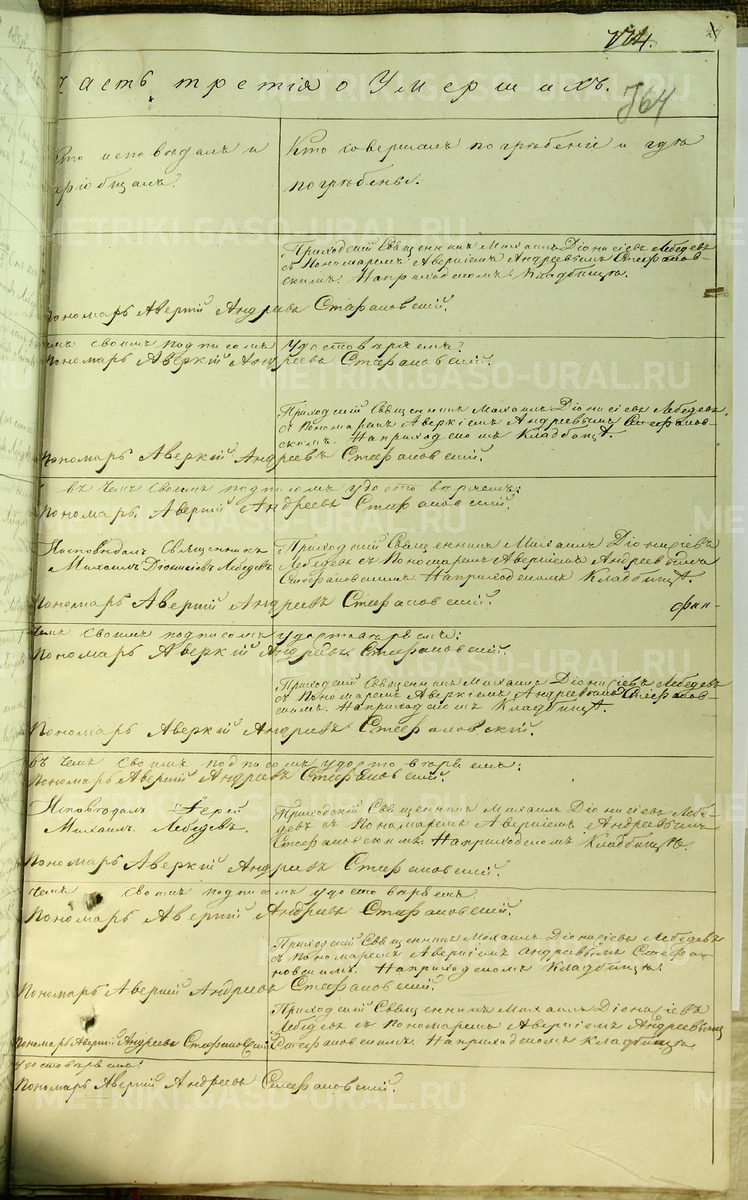 774.
Часть третія о Умершихъ.
764
Кто исповѣдалъ и
пріобщалъ?
Кто совершалъ погрѣбеніе и гдѣ
погрѣбены.
Приходскій Священникъ Михаилъ Діонисіевъ Лебедевъ
съ Пономаремъ Аверкіемъ Андреевымъ Стефановскимъ. На приходскомъ Кладбищѣ.
Пономарь Аверкій Андреевъ Стефановскій.
чемъ своимъ подписомъ удостовѣряемъ:
Пономарь Аверкій Андреевъ Стефановскій.
Приходскій Священникъ Михаилъ Діонисіевъ Лебедевъ
съ Пономаремъ Аверкіемъ Андреевымъ Стефановскимъ. На приходскомъ Кладбищѣ.
Пономарь Аверкій Андреевъ Стефановскій.
въ чемъ своимъ подписомъ удостовѣряемъ:
Пономарь Аверкій Андреевъ Стефановскій.
Исповѣдалъ Священникъ
Михаилъ Діонисіевъ Лебедевъ
Приходскій Священникъ Михаилъ Діонисіевъ
Лебедевъ съ Пономаремъ Аверкіемъ Андреевымъ
Стефановскимъ. На приходскомъ Кладбищѣ.
Пономарь Аверкій Андреевъ Стефановскій.
чемъ своимъ подписомъ удостовѣряемъ:
Пономарь Аверкій Андреевъ Стефановскій.
Приходскій Священникъ Михаилъ Діонисіевъ Лебедевъ
съ Пономаремъ Аверкіемъ Андреевымъ Стефановскимъ. На приходскомъ Кладбищѣ.
Пономарь Аверкій Андреевъ Стефановскій.
въ чемъ своимъ подписомъ удостовѣряемъ:
Пономарь Аверкій Андреевъ Стефановскій.
Исповѣдалъ Іерей
Михаилъ Лебедевъ.
Приходскій Священникъ Михаилъ Діонисіевъ Лебе-
девъ съ Пономаремъ Аверкіемъ Андреевымъ
Стефановскимъ. На приходскомъ Кладбищѣ.
Пономарь Аверкій Андреевъ Стефановскій.
чемъ своимъ подписомъ удостовѣряемъ
Пономарь Аверкій Андреевъ Стефановскій.
Приходскій Священникъ Михаилъ Діонисіевъ Лебедевъ
съ Пономаремъ Аверкіемъ Андреевымъ Стефа-
новскимъ. На приходскомъ Кладбищѣ.
Пономарь Аверкій Андреевъ Стефановскій.
Приходскій Священникъ Михаилъ Діонисіевъ
Лебедевъ съ Пономаремъ Аверкіемъ Андреевымъ
Стефановскимъ. На приходскомъ Кладбищѣ
Пономарь Аверкій Андреевъ Стефановскій
удостовѣряемъ:
Пономарь Аверкій Андреевъ Стефановскій.
METRIKI.GASO-URAL.RU